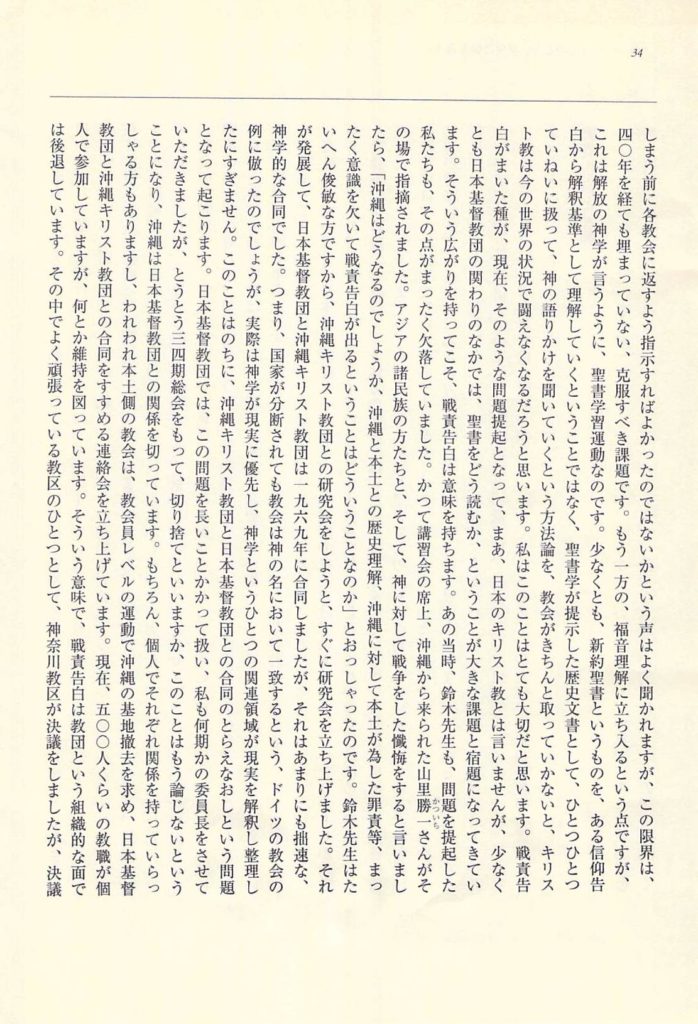 34
しまう前に各教会に返すよう指示すればよかったのではないかという声はよく聞かれますが、この限界は、
四〇年を経ても埋まっていない、克服すべき課題です。もう一方の、福音理解に立ち入るという点ですが、
これは解放の神学が言うように、聖書学習運動なのです。少なくとも、新約聖書というものを、ある信仰告
白から解釈基準として理解していくということではなく、聖書学が提示した歴史文書として、ひとつひとつ
ていねいに扱って、神の語りかけを聞いていくという方法論を、教会がきちんと取っていかないと、キリス
ト教は今の世界の状況で闘えなくなるだろうと思います。私はこのことはとても大切だと思います。戦責告
白がまいた種が、現在、そのような問題提起となって、まあ、日本のキリスト教とは言いませんが、少なく
とも日本基督教団の関わりのなかでは、聖書をどう読むか、ということが大きな課題と宿題になってきてい
ます。そういう広がりを持ってこそ、戦責告白は意味を持ちます。あの当時、鈴木先生も、問題を提起した
私たちも、その点がまったく欠落していました。かつて講習会の席上、沖縄から来られた山里勝一かついちさんがそ
の場で指摘されました。アジアの諸民族の方たちと、そして、神に対して戦争をした懺悔をすると言いまし
たら、「沖縄はどうなるのでしょうか、沖縄と本土との歴史理解、沖縄に対して本土が為した罪責等、まっ
たく意識を欠いて戦責告白が出るということはどういうことなのか」とおっしゃったのです。鈴木先生はた
いへん俊敏な方ですから、沖縄キリスト教団との研究会をしようと、すぐに研究会を立ち上げました。それ
が発展して、日本基督教団と沖縄キリスト教団は一九六九年に合同しましたが、それはあまりにも拙速な、
神学的な合同でした。つまり、国家が分断されても教会は神の名において一致するという、ドイツの教会の
例に倣ったのでしょうが、実際は神学が現実に優先し、神学というひとつの関連領域が現実を解釈し整理し
たにすぎません。このことはのちに、沖縄キリスト教団と日本基督教団との合同のとらえなおしという問題
となって起こります。日本基督教団では、この問題を長いことかかって扱い、私も何期かの委員長をさせて
いただきましたが、とうとう三四期総会をもって、切り捨てといいますか、このことはもう論じないという
ことになり、沖縄は日本基督教団との関係を切っています。もちろん、個人でそれぞれ関係を持っていらっ
しゃる方もありますし、われわれ本土側の教会は、教会員レベルの運動で沖縄の基地撤去を求め、日本基督
教団と沖縄キリスト教団との合同をすすめる連絡会を立ち上げています。現在、五〇〇人くらいの教職が個
人で参加していますが、何とか維持を図っています。そういう意味で、戦責告白は教団という組織的な面で
は後退しています。その中でよく頑張っている教区のひとつとして、神奈川教区が決議をしましたが、決議